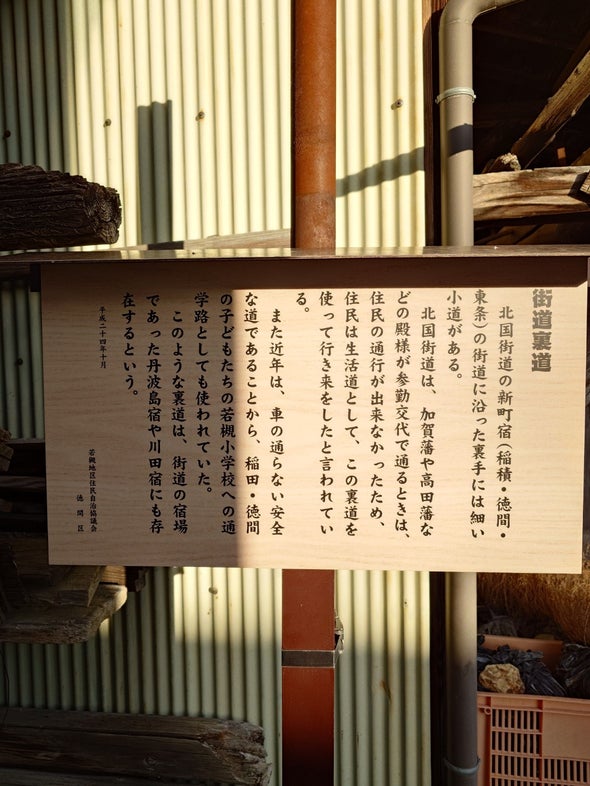 街道裏道
北国街道の新町宿(稲積・徳間・
東条)の街道に沿った裏手には細い
小道がある。
北国街道は、加賀藩や高田藩な
どの殿様が参勤交代で通るときは、
住民の通行が出来なかったため、
住民は生活道として、この裏道を
使って行き来をしたと言われてい
る。
また近年は、車の通らない安全
な道であることから、稲田・徳間
の子どもたちの若槻小学校への通
学路としても使われていた。
このような裏道は、街道の宿場
であった丹波島宿や川田宿にも存
在するという。
平成二十四年十月
若槻地区住民自治協議会
徳間区